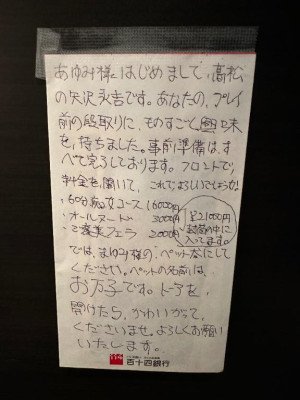 あゆみ様はじめまして、高松
の矢沢永吉です。あなたの、プレイ
前の段取りに、ものすごく興味
を、持ちました。事前準備は、す
べて完了しております。フロントで、
料金を、聞いて、これでよろしいでしょうか!
・60分痴女コース 16000円
・オールヌード 3000円
・ご褒美フェラ 2000円
¥21,000円
封筒の中に
入ってます。
では、まゆみ様の、ペットなにして
ください。ペットの名前は、
お万子です。ドアを、
開けたら、かわいがって、
くださいませ。よろしくお願い
いたします。
114
百十四銀行